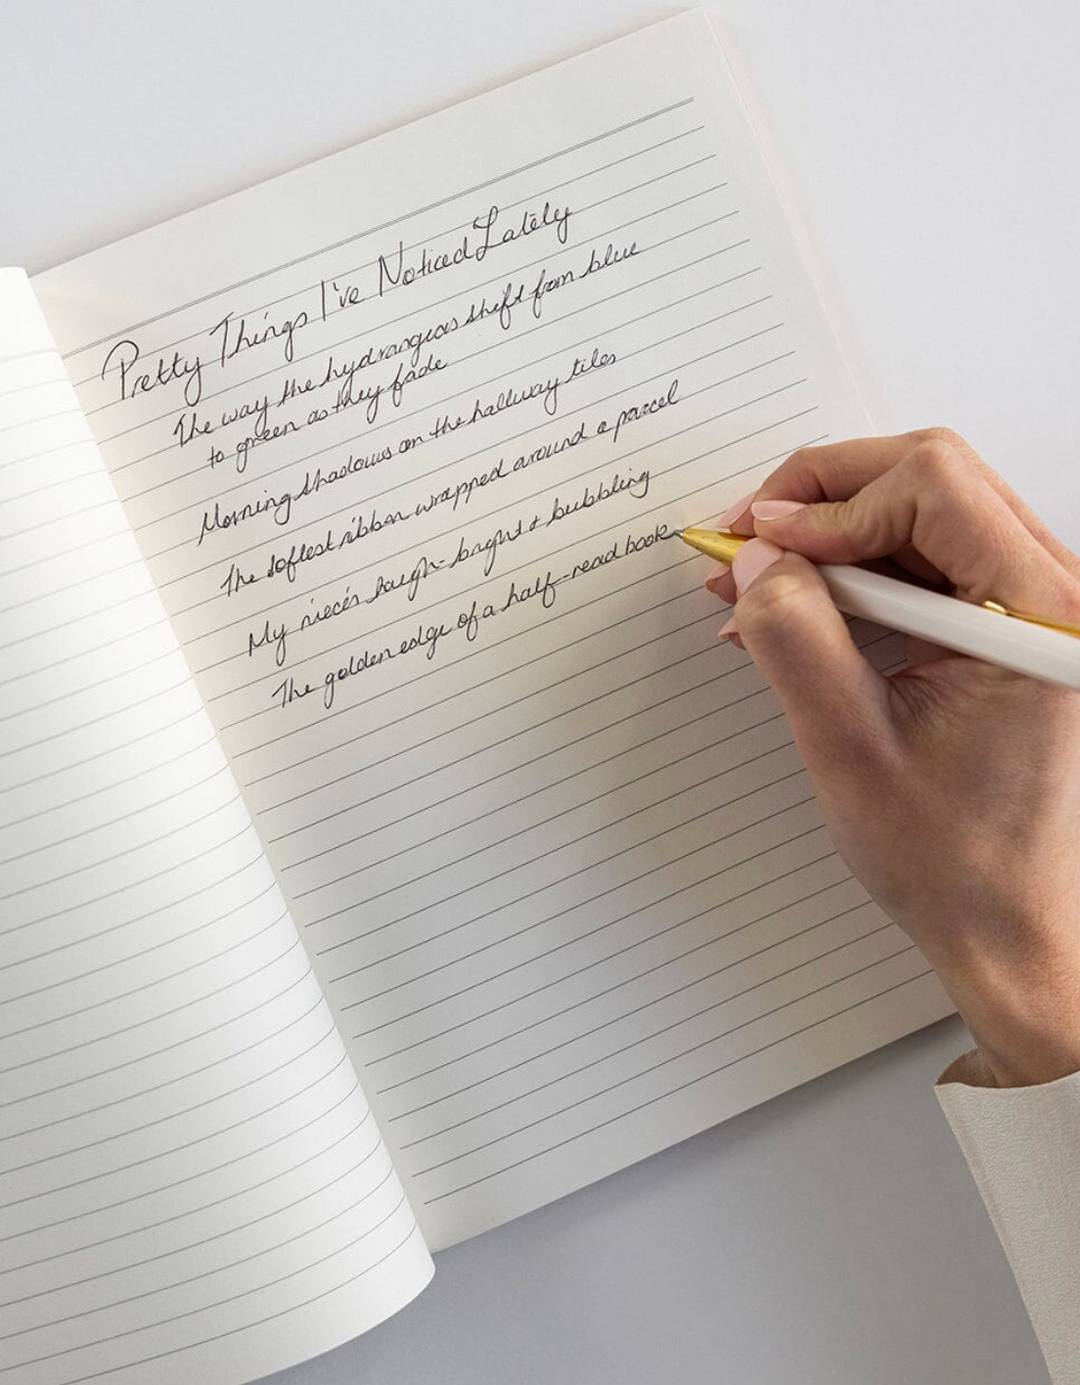 Pretty Things I've Noticed Lately
The way the hydrangeas shift from blue
to green as they fade
Morning shadows on the hallway tiles
The softest ribbon wrapped around a parcel
My niece's laugh - bright & bubbling
The golden edge of a half-read book